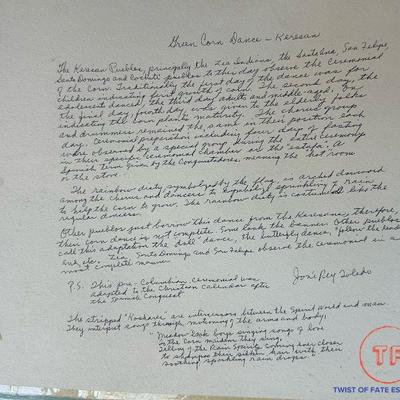 Green Corn Dance - Keresan
"The Keresan Pueblos, principally the Zia Indians, the Santa Ana, San Felipe,
Santo Domingo and Cochiti pueblos to this day observe the Ceremonial
of the Corn. Traditionally the first day of the dance was for
children indicating first growth of corn. The second day, the
adolescent danced, the third day adults and middle-aged. On
the final day, fourth day was given to the elderly folks
indicating the corn plants maturity. The chanted group
and drummers remained the same in their position each
day. Ceremonial preparation including four day of fasting
were observed by a special group during the entire ceremony
in their specific ceremonial chamber or the "estufa". A
Spanish term given by the Conquistadores, meaning the hot room
or the stove."
The rainbow diety symbolized by the flag, is arched downward
among the chorus and dancers to symbolize sprinkling of rain
to keep the corn to grow. The rainbow diety is costumed like the
regular dancers.
Other pueblos just borrow this dance from the Keresans, therefore,
their corn dance is not complete. Some lack the banner. Other pueblos
call this adaptation the doll dance, the butterfly dance, "follow the leader
but, etc. Zia, Santo Domingo and San Felipe observe the ceremonial in a
most complete manner.
P.S. This pre-Columbian ceremonial was
adapted to the Christian calendar after
the Spanish Conquest.
José Rey Toledo
The stripped "Koshares" are intercessors between the Spirit World and man.
They interpret songs through motioning of the arms and body,
"Meadow-lark boys singing songs of love
to the Corn maidens they sing,
Telling of the Rain Spirits coming ever closer
to shampoo their silken hair with their
soothing sparkling rain drops."
TF
TWIST OF FATE ES